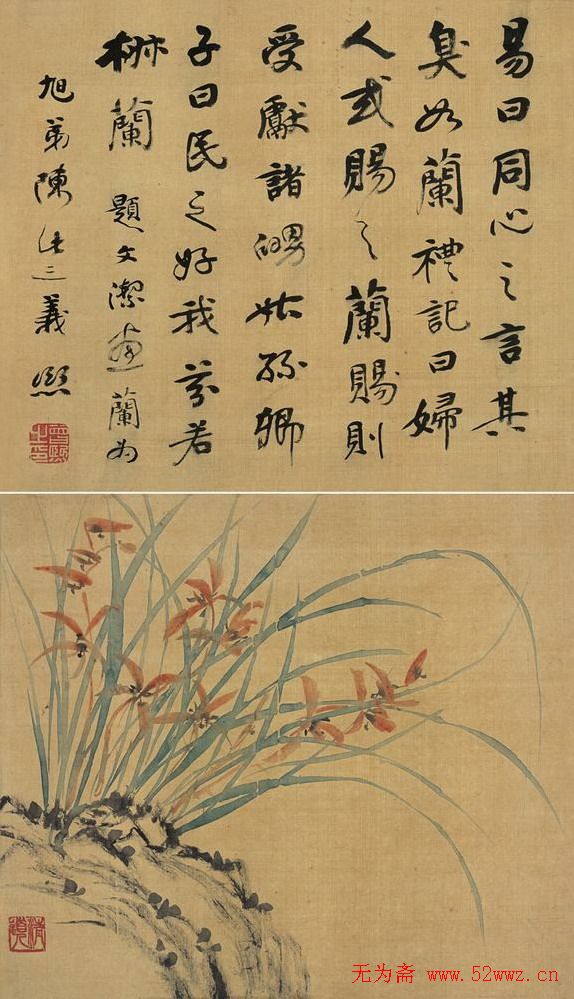 易曰同心之言其
臭如蘭禮記曰婦
人或賜之蘭賜則
受獻諸舅姑孫卿
子曰民之好我芬若
椒蘭 題文潔畫蘭為
旭弟陳 三義 熙
无为斋 www.52wwz.cn